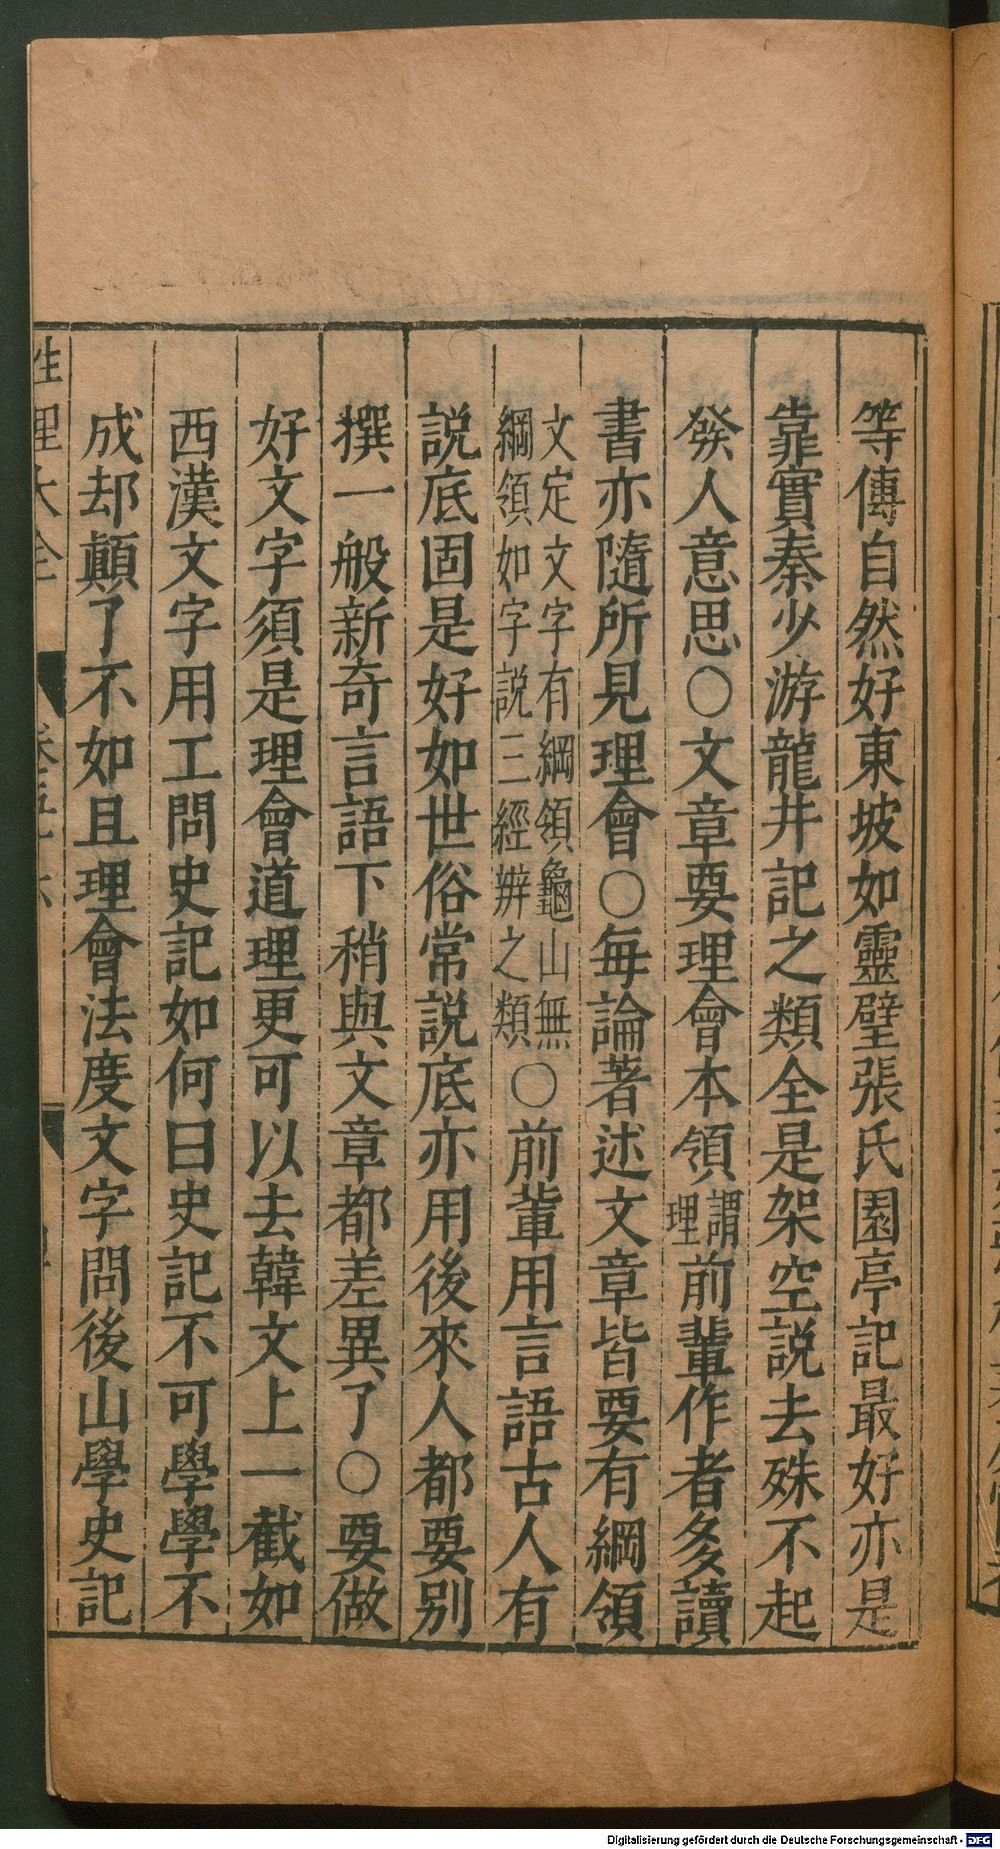 等傳自然好東坡如靈壁張氏園亭記最好亦是
靠實秦少游龍井記之類全是架空説去殊不起
發人意思○文章要理會本領謂理前輩作者多讀
書亦隨所見理會○每論著述文章皆要有綱領
文定文字有綱領龜山無
綱領如字説三經辨之類
○前輩用言語古人有
説底固是好如世俗常説底亦用後來人都要別
撰一般新奇言語下稍與文章都差異了○要做
好文字須是理會道理更可以去韓文上一截如
西漢文字用工問史記如何曰史記不可學學不
成却顛了不如且理會法度文字問後山學史記
性理大全
Digitalisierung gefördert durch die Deutsche Forschungsgemeinschaft - DFG